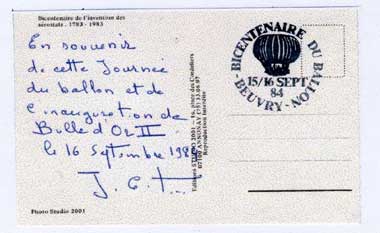 Bicentenaire de l'invention des
aérostats. 1783 - 1983
En souvenir
de cette Journée
du ballon et de
l'inauguration de
Bulle d'Or II
le 16 Septembre 198
Photo Studio 2001
Editions STUDIO 2001 - 16, place des Cordeliers
07100 ANNONAY (75) 33.08.97
Reproduction interdite
BICENTENAIRE DU BALLON
15/16 SEPT.
84
-BEUVRY-